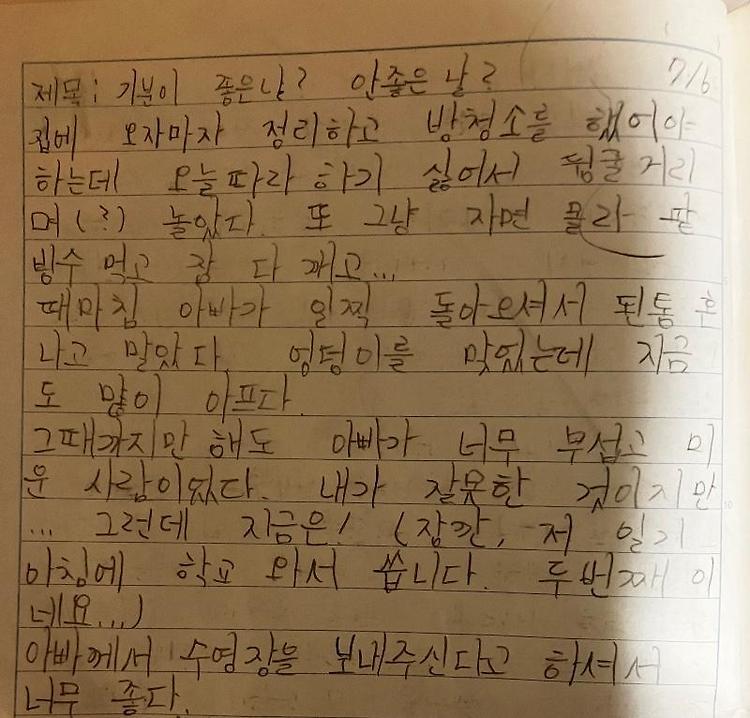 제목: 기분이 좋은날? 안좋은 날? 7/6
집에 오자마자 정리하고 방청소를 했어야
하는데 오늘따라 하기 싫어서 뒹굴 거리
며(?) 놀았다. 또 그냥 자면 몰라 팥
빙수 먹고 잠 다 깨고...
때마침 아빠가 일찍 돌아오셔서 된통 혼
나고 말았다. 엉덩이를 맞았는데 지금
도 많이 아프다.
그때까지만 해도 아빠가 너무 무섭고 미
운 사람이었다. 내가 잘못한 것이지만
... 그런데 지금은! (잠깐, 저 일기
아침에 학교 와서 씁니다. 두번째 이
네요...)
아빠께서 수영장을 보내주신다고 하셔서
너무 좋다.